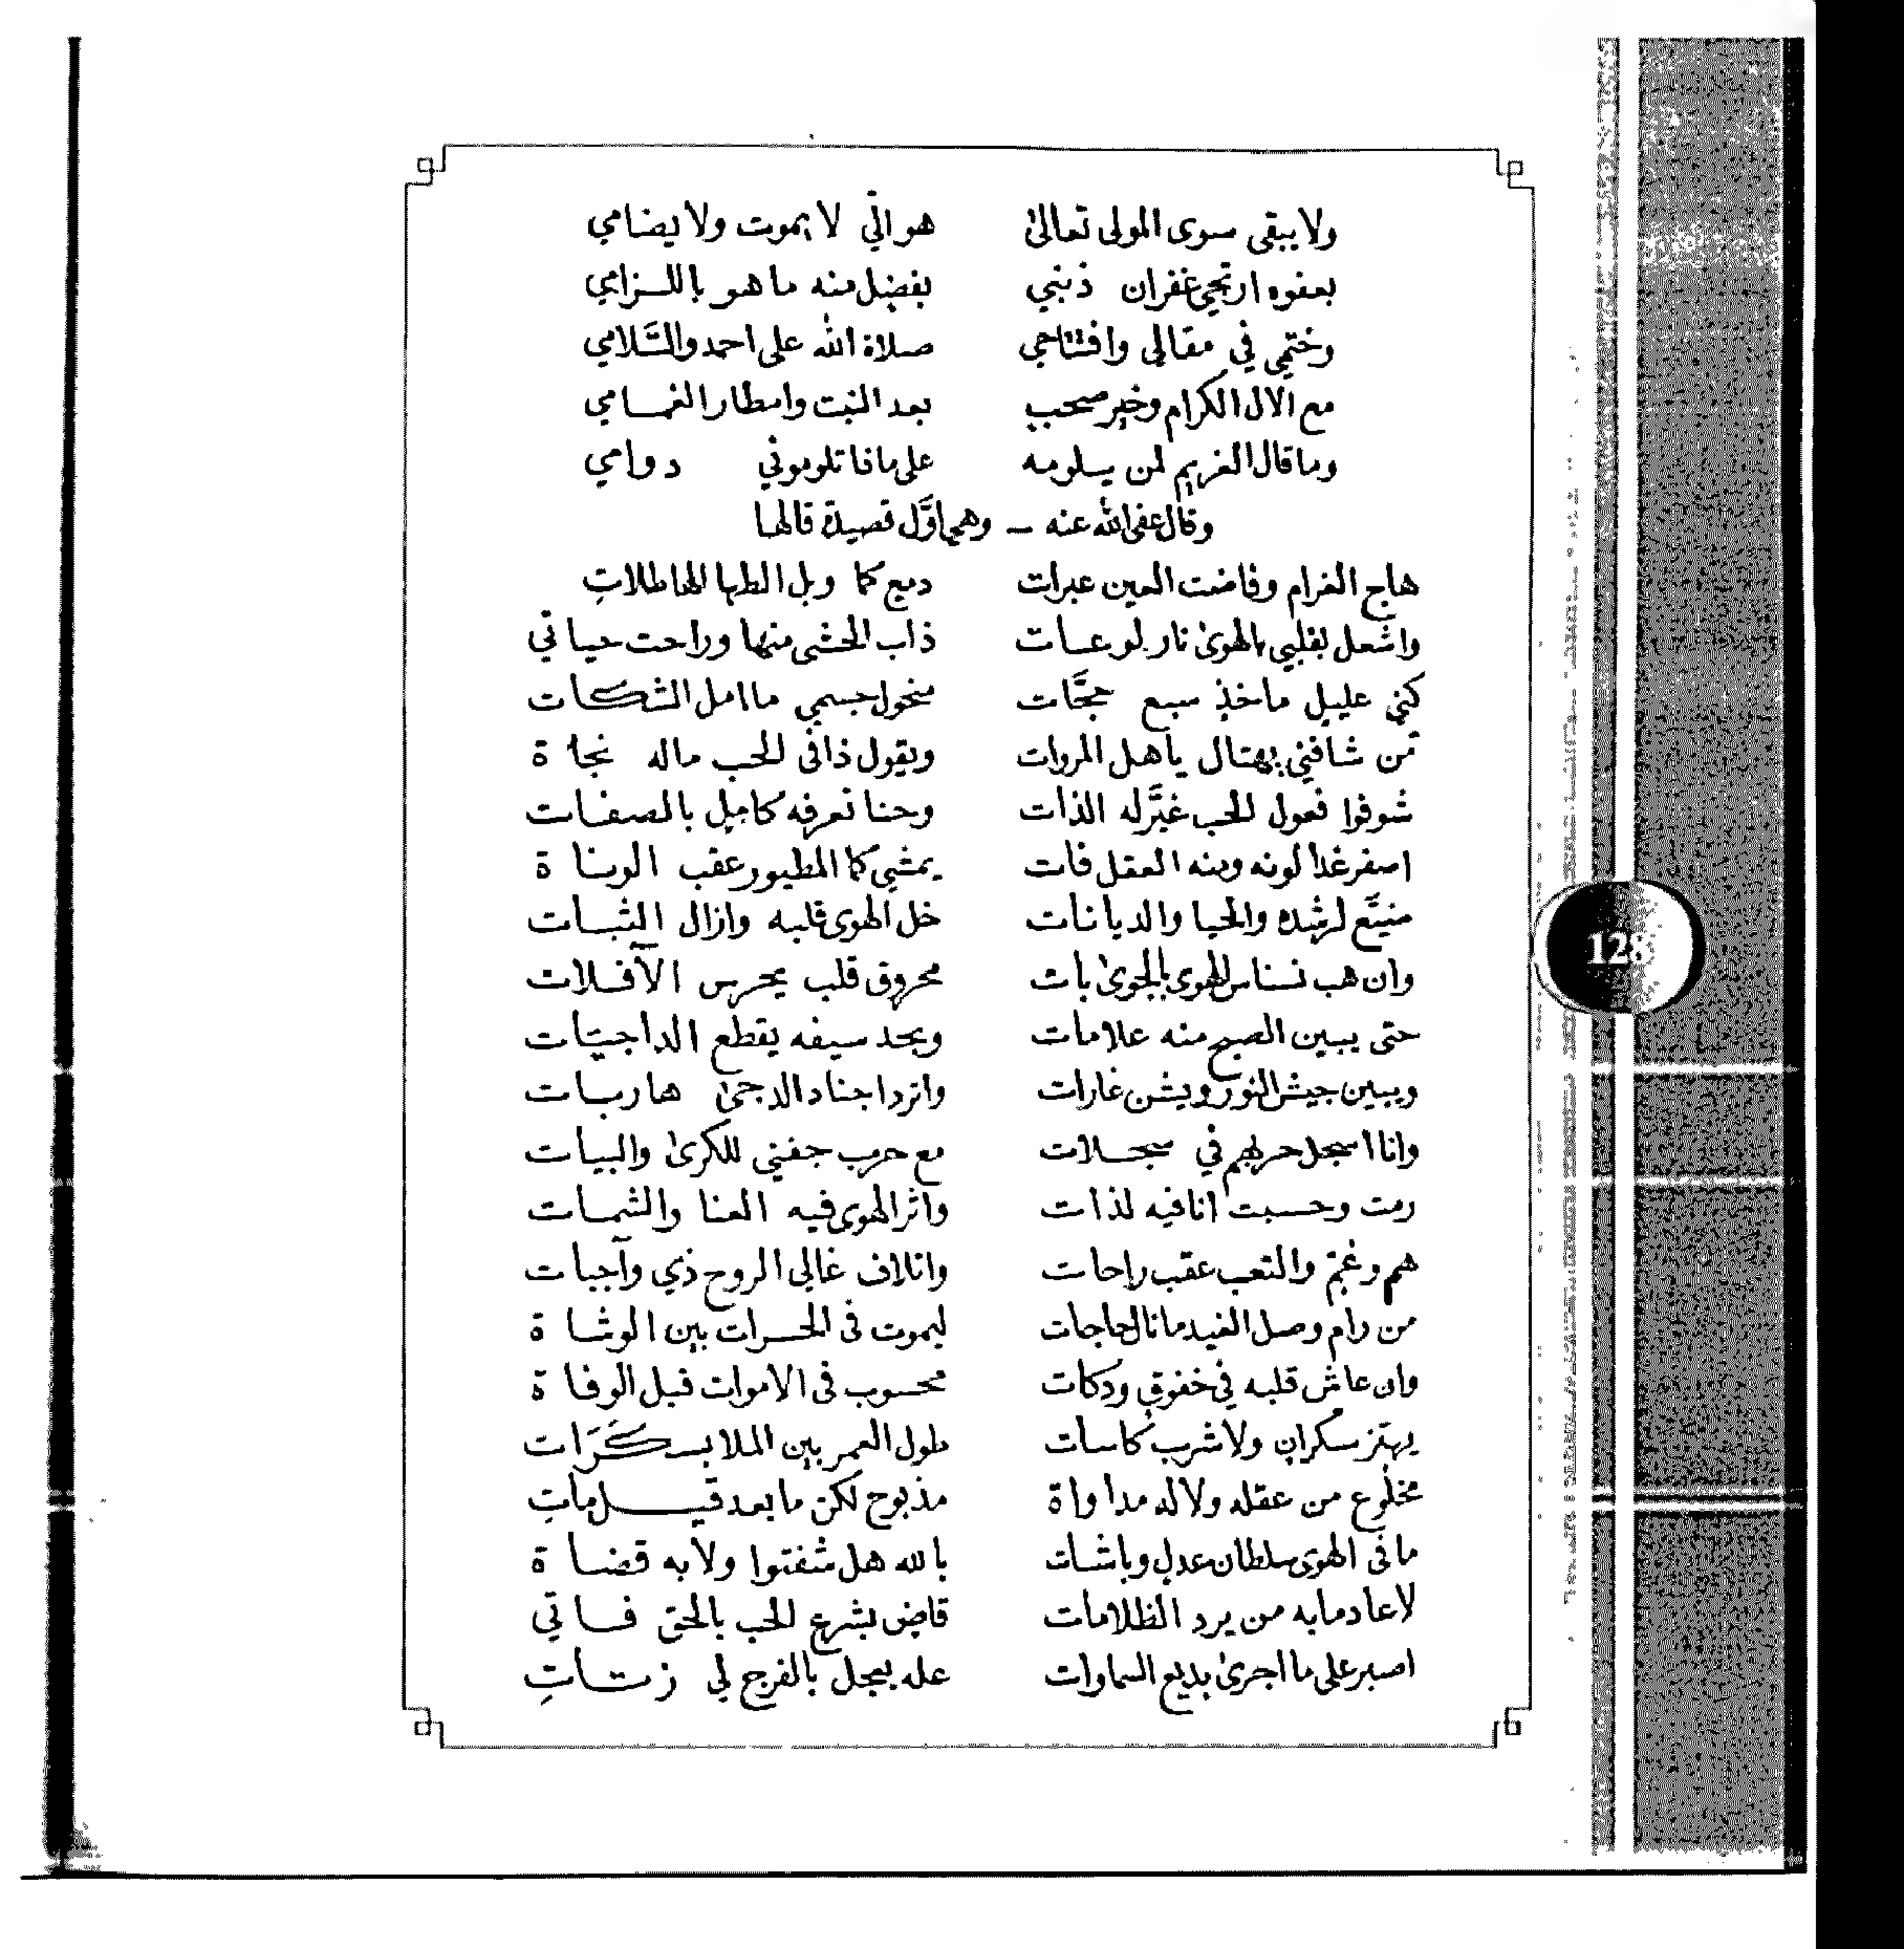 ولا يبقى سوى المولى تعالى هو الّي لا يموت ولا يضامي
بعفوه ارتجي غفران ذنبي بفضل منه ما هو باللزامي
وختمي في مقالي وافتتاحي صلاة الله على احمد والسَّلامي
مع الال الكرام وخير صحب بعد النبت وامطار الغمامي
وما قال الغريم لمن يلومه على مافا تلوموني دوامي
وقال عفى الله عنه – وهي اوَّل قصيدة قالها
هاج الغرام وفاضت العين عبرات دمع كما وبل الطها الهاطلاتِ
واشعل بقلبي بالهوى نار لوعات ذاب الحشى منها وراحت حياتي
كني عليل ماخذ سبع حجَّات منحول جسمي ما امل الشكات
من شافني يهتال ياهل المروات ويقول ذا في الحب ماله نجاة
شوفوا فعول الحب غيَّر له الذات وحنا نعرفه كامل بالصفات
اصفر غدا لونه ومنه العقل فات يمشي كما المطيور عقب الوناة
منيَّع لرشده والحيا والديانات خل الهوى قلبه وازال الثبات
وان هب نسناس الهوى بالجوى بات محروق قلب يحرس الآفلات
حتى يبين الصبح منه علامات ويحد سيفه يقطع الداجيات
ويبين جيش النور ويشن غارات واترد اجناد الدجى هاربات
وانا اسجل حربهم في سجلات مع حرب جفني للكرى والبيات
رمت وحسبت انا فيه لذات واثر الهوى فيه العنا والشمات
هم وغم والتعب عقب راحات واتلاف غالي الروح ذي واجبات
من رام وصل الغيد ما نال حاجات ليموت في الحسرات بين الوشاة
وان عاش قلبه في خفوق ودكات محسوب في الاموات قبل الوفاة
يهتز سكران ولا شرب كاسات طول العمر بين الملا بسكَرَات
مخلوع من عقله ولا له مداواة مذبوح لكن ما بعد قيل ماتِ
ما في الهوى سلطان عدل وباشات بالله هل شفتوا ولاَ به قضاة
لا عاد مابه من يرد الظلامات قاضٍ بشرع الحب بالحق فاتي
اصبر على ما اجرى بديع السماوات عله يعجل بالفرج لي زتاتِ
128